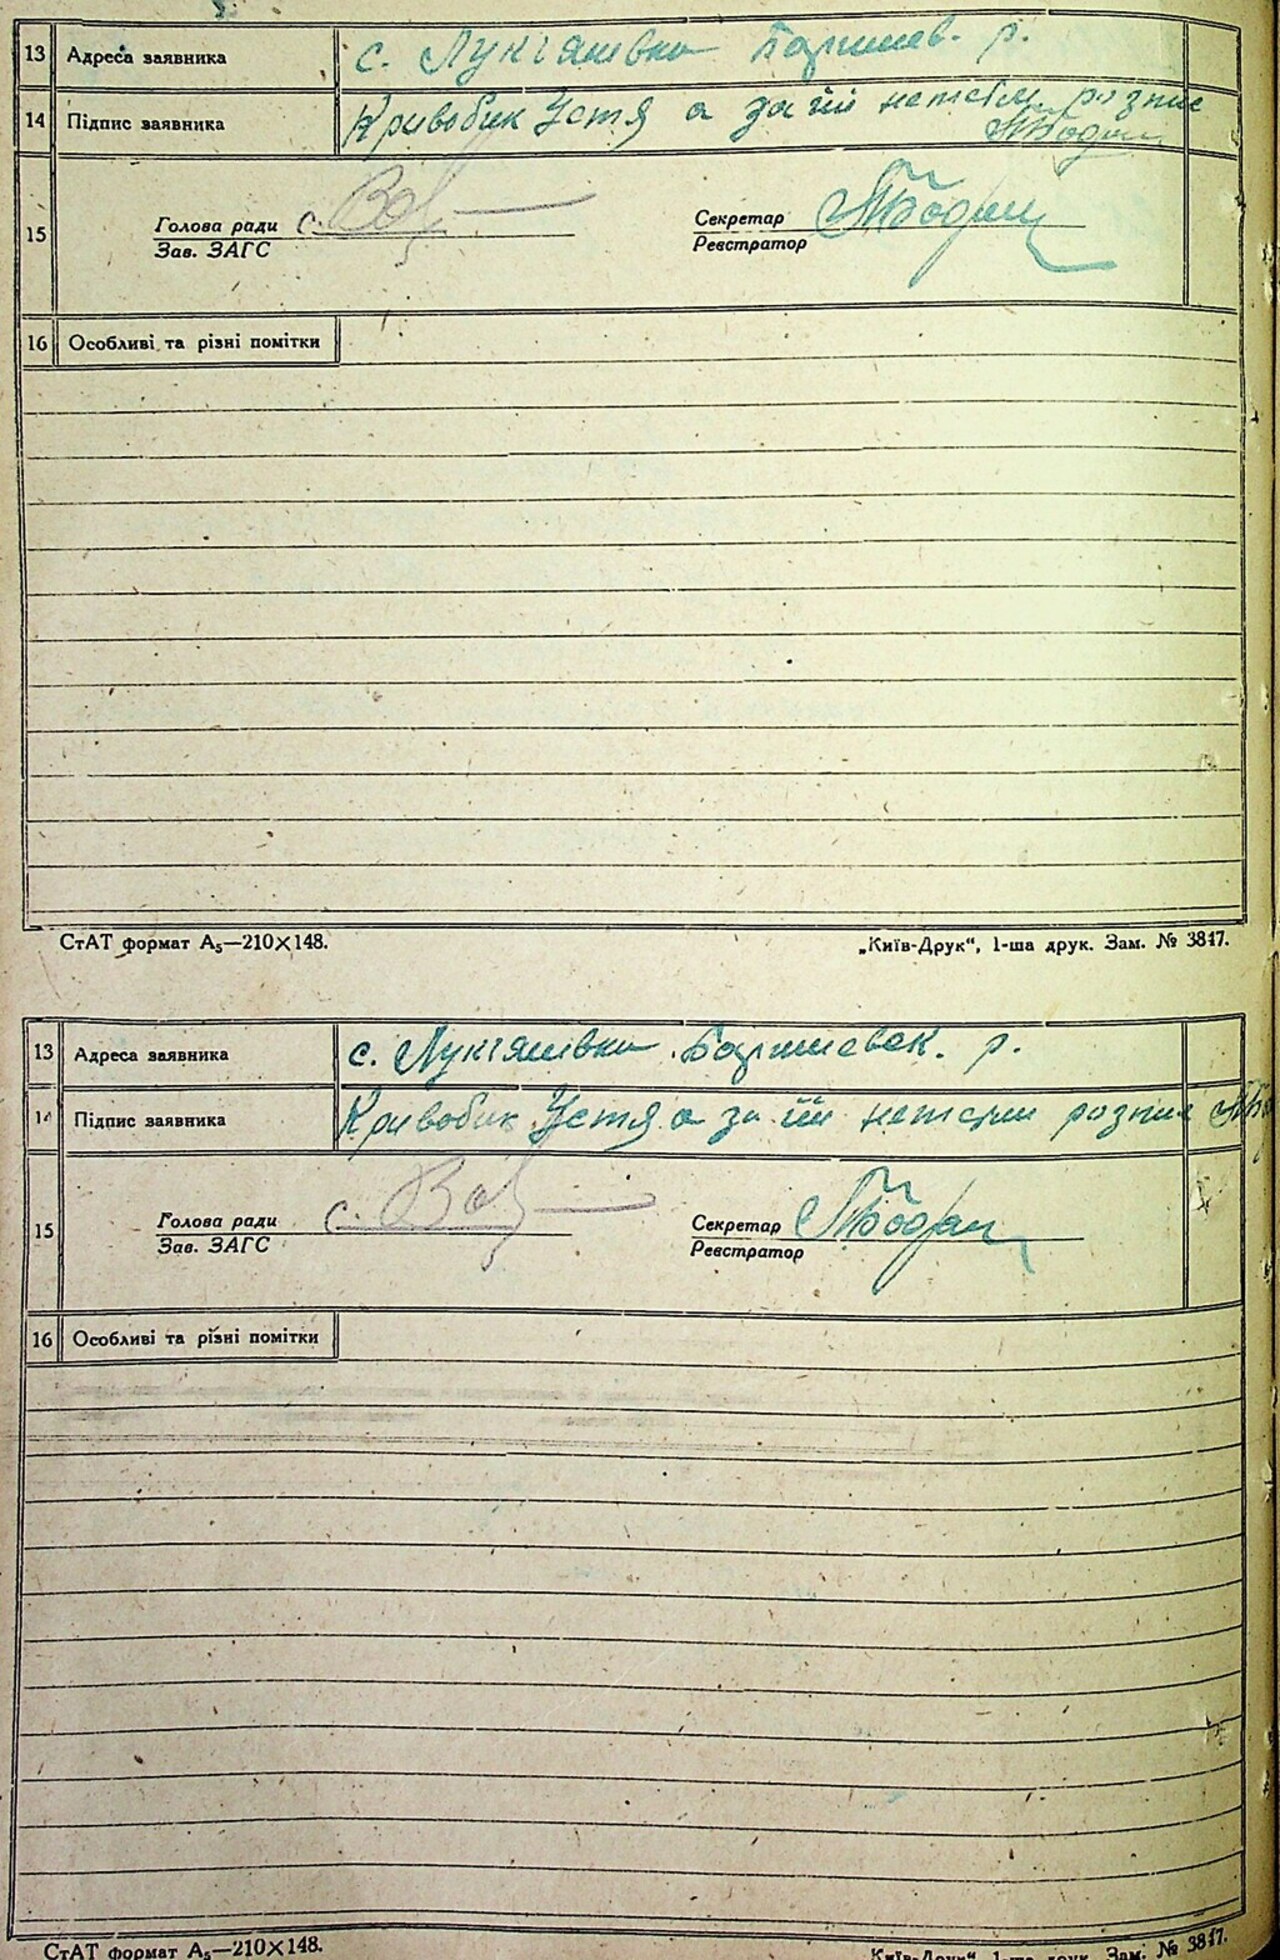 13 Адреса заявника с. Лукіянівка Баришев. р.
14 Підпис заявника Кривобик Устя а за їй неписьм розпис
15
Голова ради с.
Зав. ЗАГС
Секретар
Реєстратор
16 Особливі та різні помітки
СтАТ формат А₅—210×148.
„Київ-Друк“, 1-ша друк. Зам. № 3817.
13 Адреса заявника с. Лукіянівка Баришевск. р.
14 Підпис заявника Кривобик Устя а за їй неписьм розпис
15
Голова ради с.
Зав. ЗАГС
Секретар
Реєстратор
16 Особливі та різні помітки
СтАТ формат А₅—210×148.
„Київ-Друк“, 1-ша друк. Зам. № 3817.